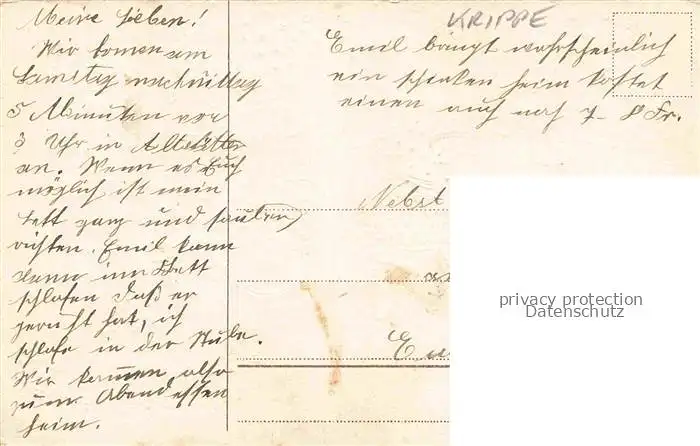 Meine Lieben!
Wir komen am
Samstag nachmittag
5 Minuten vor
3 Uhr in Altstätten
an. Wenn es Euch
möglich ist mein
Bett ganz und
richten. Emil kann
dann im Bett
schlafen daß er
geruht hat, ich
schlafe in der Stube.
Wir kommen also
zum Abendessen
heim.
KRIPPE
Emil bringt wahrscheinlich
ein schinken heim kostet
einen auch noch 7-8 Fr.
Nebst
privacy protection
Datenschutz